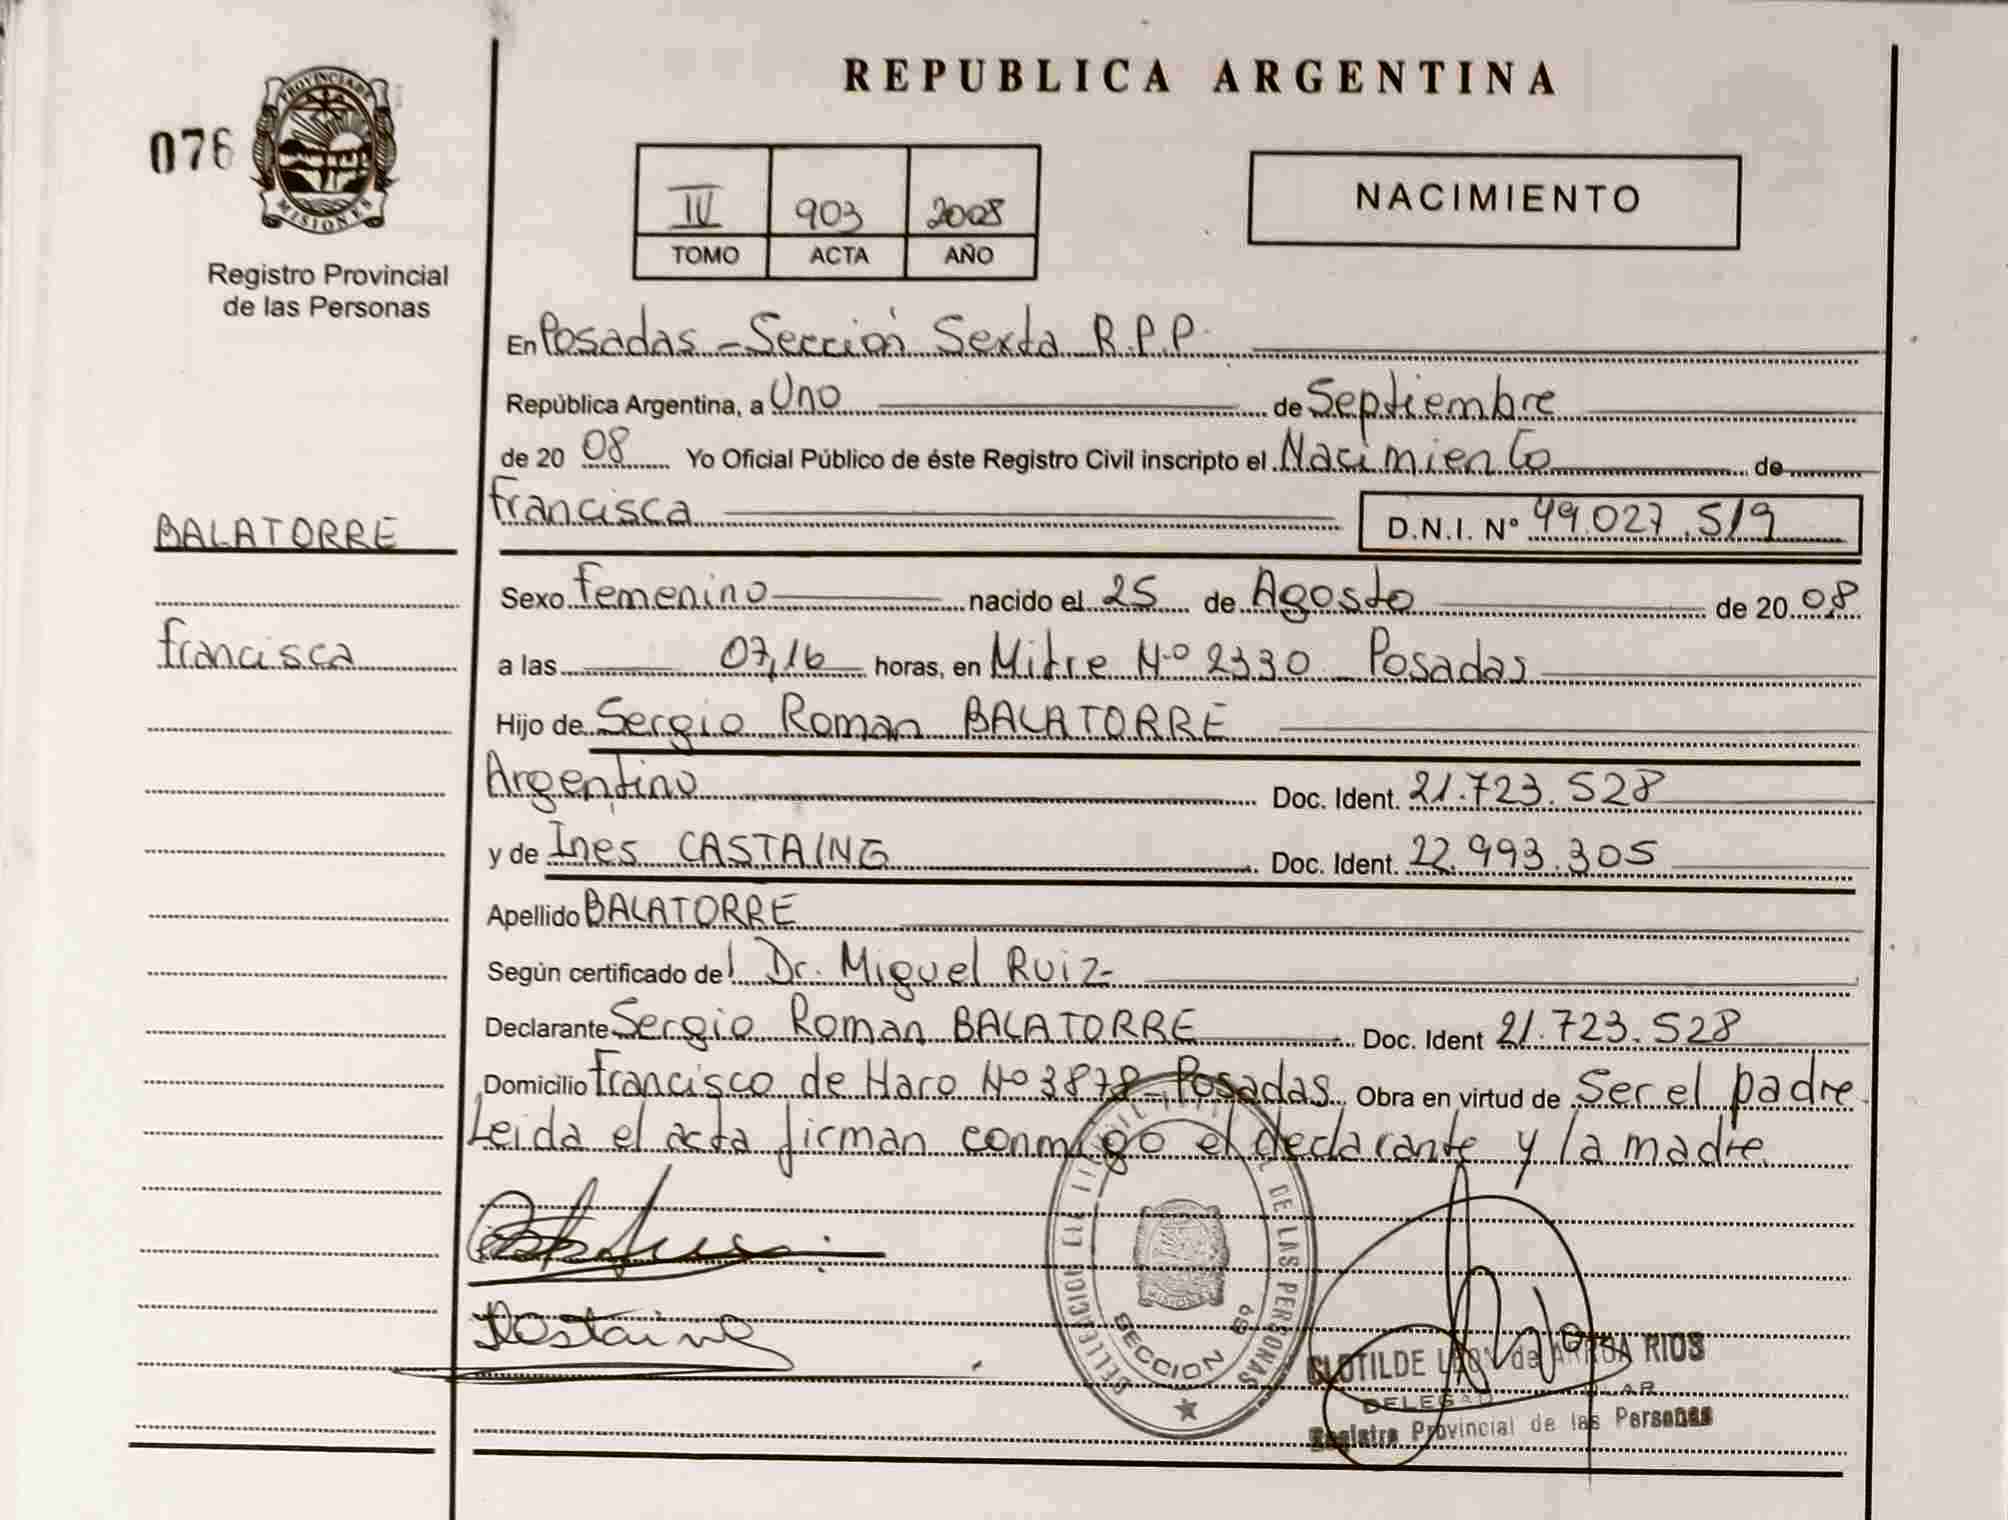 REPUBLICA ARGENTINA
076
PROVINCIA DE
MISIONES
Registro Provincial
de las Personas
IV 903 2008
TOMO ACTA AÑO
NACIMIENTO
En Posadas - Sección Sexta R.P.P.
República Argentina, a Uno de Septiembre
de 20 08 Yo Oficial Público de éste Registro Civil inscripto el Nacimiento de
Francisca D.N.I. Nº 49.027.519
BALATORRE
Francisca
Sexo Femenino nacido el 25 de Agosto de 20 08
a las 07,16 horas, en Mitre Nº 2330 Posadas
Hijo de Sergio Roman BALATORRE
Argentino Doc. Ident. 21.723.528
y de Ines CASTAING Doc. Ident. 22.993.305
Apellido BALATORRE
Según certificado del Dr. Miguel Ruiz
Declarante Sergio Roman BALATORRE Doc. Ident 21.723.528
Domicilio Francisco de Haro Nº 3878 - Posadas Obra en virtud de Ser el padre
Leida el acta firman conmigo el declarante y la madre
DE LAS PERSONAS
MISIONES
SECCION 6º
CLOTILDE de RIOS
Registro Provincial de las Personas